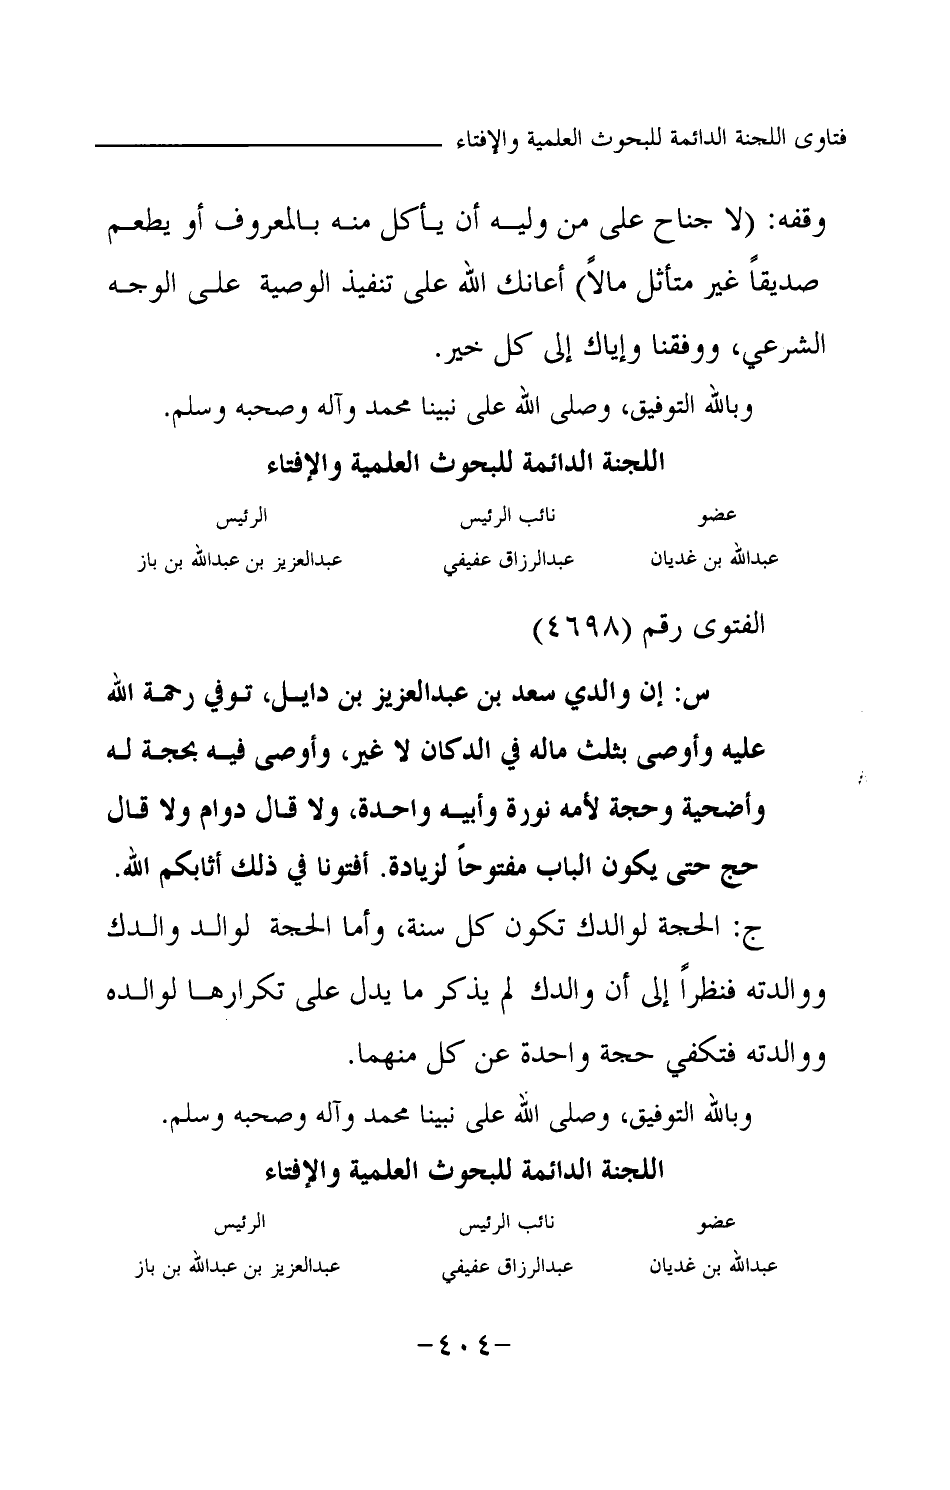 فتاوى اللجنة الدائمة للبحوث العلمية والإفتاء
وقفه: (لا جناح على من وليه أن يأكل منه بالمعروف أو يطعم
صديقاً غير متأثل مالاً) أعانك الله على تنفيذ الوصية على الوجه
الشرعي، ووفقنا وإياك إلى كل خير.
وبالله التوفيق، وصلى الله على نبينا محمد وآله وصحبه وسلم.
اللجنة الدائمة للبحوث العلمية والإفتاء
عضو نائب الرئيس الرئيس
عبدالله بن غديان عبدالرزاق عفيفي عبدالعزيز بن عبدالله بن باز
الفتوى رقم (٤٦٩٨)
س: إن والدي سعد بن عبدالعزيز بن دايل، توفي رحمة الله
عليه وأوصى بثلث ماله في الدكان لا غير، وأوصى فيه بحجة له
وأضحية وحجة لأمه نورة وأبيه واحدة، ولا قال دوام ولا قال
حج حتى يكون الباب مفتوحاً لزيادة. أفتونا في ذلك أثابكم الله.
ج: الحجة لوالدك تكون كل سنة، وأما الحجة لوالد والدك
ووالدته فنظراً إلى أن والدك لم يذكر ما يدل على تكرارها لوالده
ووالدته فتكفي حجة واحدة عن كل منهما.
وبالله التوفيق، وصلى الله على نبينا محمد وآله وصحبه وسلم.
اللجنة الدائمة للبحوث العلمية والإفتاء
عضو نائب الرئيس الرئيس
عبدالله بن غديان عبدالرزاق عفيفي عبدالعزيز بن عبدالله بن باز
-٤٠٤-